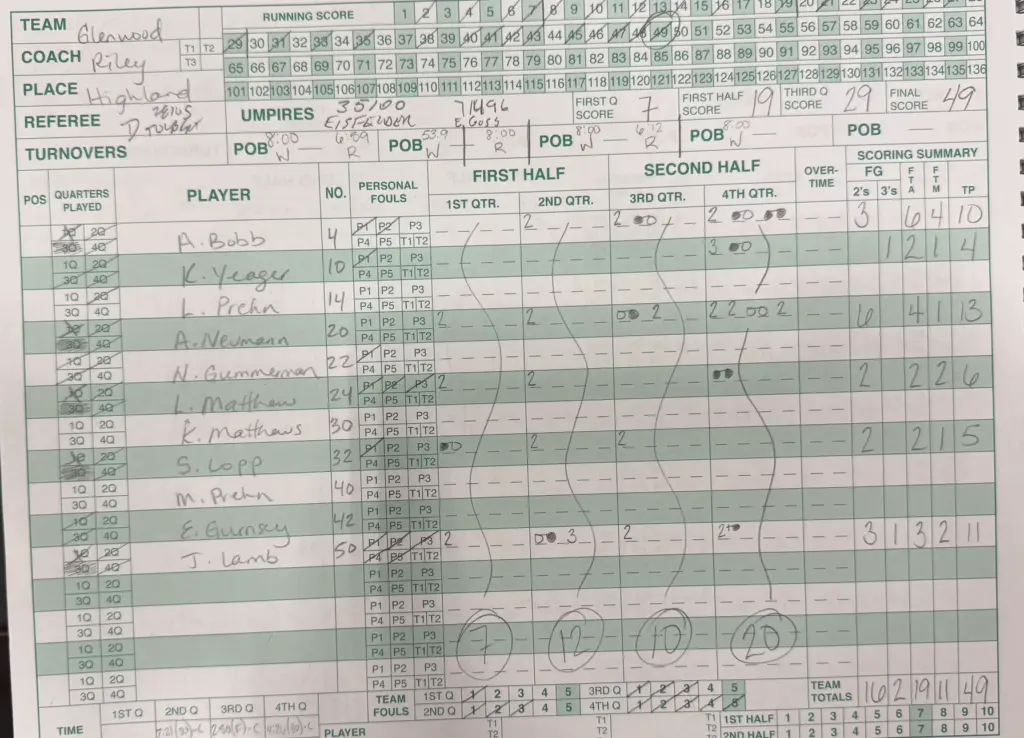 TEAM Glenwood RUNNING SCORE 1 2 3 4 5 6 7 8 9 10 11 12 13 14 15 16 17 18 19 20 21 22 23 24 25 26 27 28
T1 T2 29 30 31 32 33 34 35 36 37 38 39 40 41 42 43 44 45 46 47 48 49 50 51 52 53 54 55 56 57 58 59 60 61 62 63 64
COACH Riley T3 65 66 67 68 69 70 71 72 73 74 75 76 77 78 79 80 81 82 83 84 85 86 87 88 89 90 91 92 93 94 95 96 97 98 99 100
PLACE Highland 101 102 103 104 105 106 107 108 109 110 111 112 113 114 115 116 117 118 119 120 121 122 123 124 125 126 127 128 129 130 131 132 133 134 135 136
REFEREE UMPIRES 35100 EISFELDER 71496 E. Goss FIRST Q SCORE 7 FIRST HALF SCORE 19 THIRD Q SCORE 29 FINAL SCORE 49
TURNOVERS POB 8:00 W 6:59 R POB 53.9 W 8:00 R POB 8:00 W 6:12 R POB 8:00 W POB
POS QUARTERS PLAYED PLAYER NO. PERSONAL FOULS FIRST HALF SECOND HALF OVER-TIME SCORING SUMMARY
1ST QTR. 2ND QTR. 3RD QTR. 4TH QTR. FG 2's 3's FTA FTM TP
1Q 2Q 3Q 4Q A. Bobb 4 P1 P2 P3 P4 P5 T1 T2 2 2 00 2 00 00 3 6 4 10
1Q 2Q 3Q 4Q K. Yeager 10 P1 P2 P3 P4 P5 T1 T2 3 00 1 2 1 4
1Q 2Q 3Q 4Q L. Prehn 14 P1 P2 P3 P4 P5 T1 T2
1Q 2Q 3Q 4Q A. Neumann 20 P1 P2 P3 P4 P5 T1 T2 2 2 00 2 2 2 00 2 6 4 1 13
1Q 2Q 3Q 4Q N. Gummerman 22 P1 P2 P3 P4 P5 T1 T2
1Q 2Q 3Q 4Q L. Matthew 24 P1 P2 P3 P4 P5 T1 T2 2 2 00 2 2 2 6
1Q 2Q 3Q 4Q K. Matthews 30 P1 P2 P3 P4 P5 T1 T2
1Q 2Q 3Q 4Q S. Lopp 32 P1 P2 P3 P4 P5 T1 T2 00 2 2 2 2 1 5
1Q 2Q 3Q 4Q M. Prehn 40 P1 P2 P3 P4 P5 T1 T2
1Q 2Q 3Q 4Q E. Gurnsey 42 P1 P2 P3 P4 P5 T1 T2
1Q 2Q 3Q 4Q J. Lamb 50 P1 P2 P3 P4 P5 T1 T2 2 00 3 2 2 3 1 3 2 11
1Q 2Q 3Q 4Q P1 P2 P3 P4 P5 T1 T2
1Q 2Q 3Q 4Q P1 P2 P3 P4 P5 T1 T2
1Q 2Q 3Q 4Q P1 P2 P3 P4 P5 T1 T2 7 12 10 20
1Q 2Q 3Q 4Q P1 P2 P3 P4 P5 T1 T2
TEAM FOULS 1ST Q 1 2 3 4 5 3RD Q 1 2 3 4 5 TEAM TOTALS 16 2 19 11 49
2ND Q 1 2 3 4 5 4TH Q 1 2 3 4 5
TIME 1ST Q 2ND Q 3RD Q 4TH Q PLAYER T1 T2 T1 T2 T1 T2 1ST HALF 1 2 3 4 5 6 7 8 9 10
2ND HALF 1 2 3 4 5 6 7 8 9 10